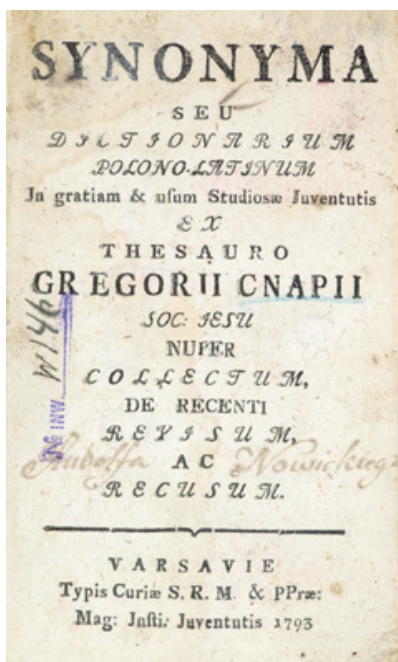 SYNONYMA
SEU
DICTIONARIUM
POLONO-LATINUM
In gratiam & usum Studiosæ Juventutis
EX
THESAURO
GREGORII CNAPII
SOC: IESU
NUPER
COLLECTUM,
DE RECENTI
REVISUM,
AC
RECUSUM.
Rudolfa Nowickiego
№ INW. W1446
VARSAVIE
Typis Curiæ S. R. M. & PPræ:
Mag: Insti: Juventutis 1793